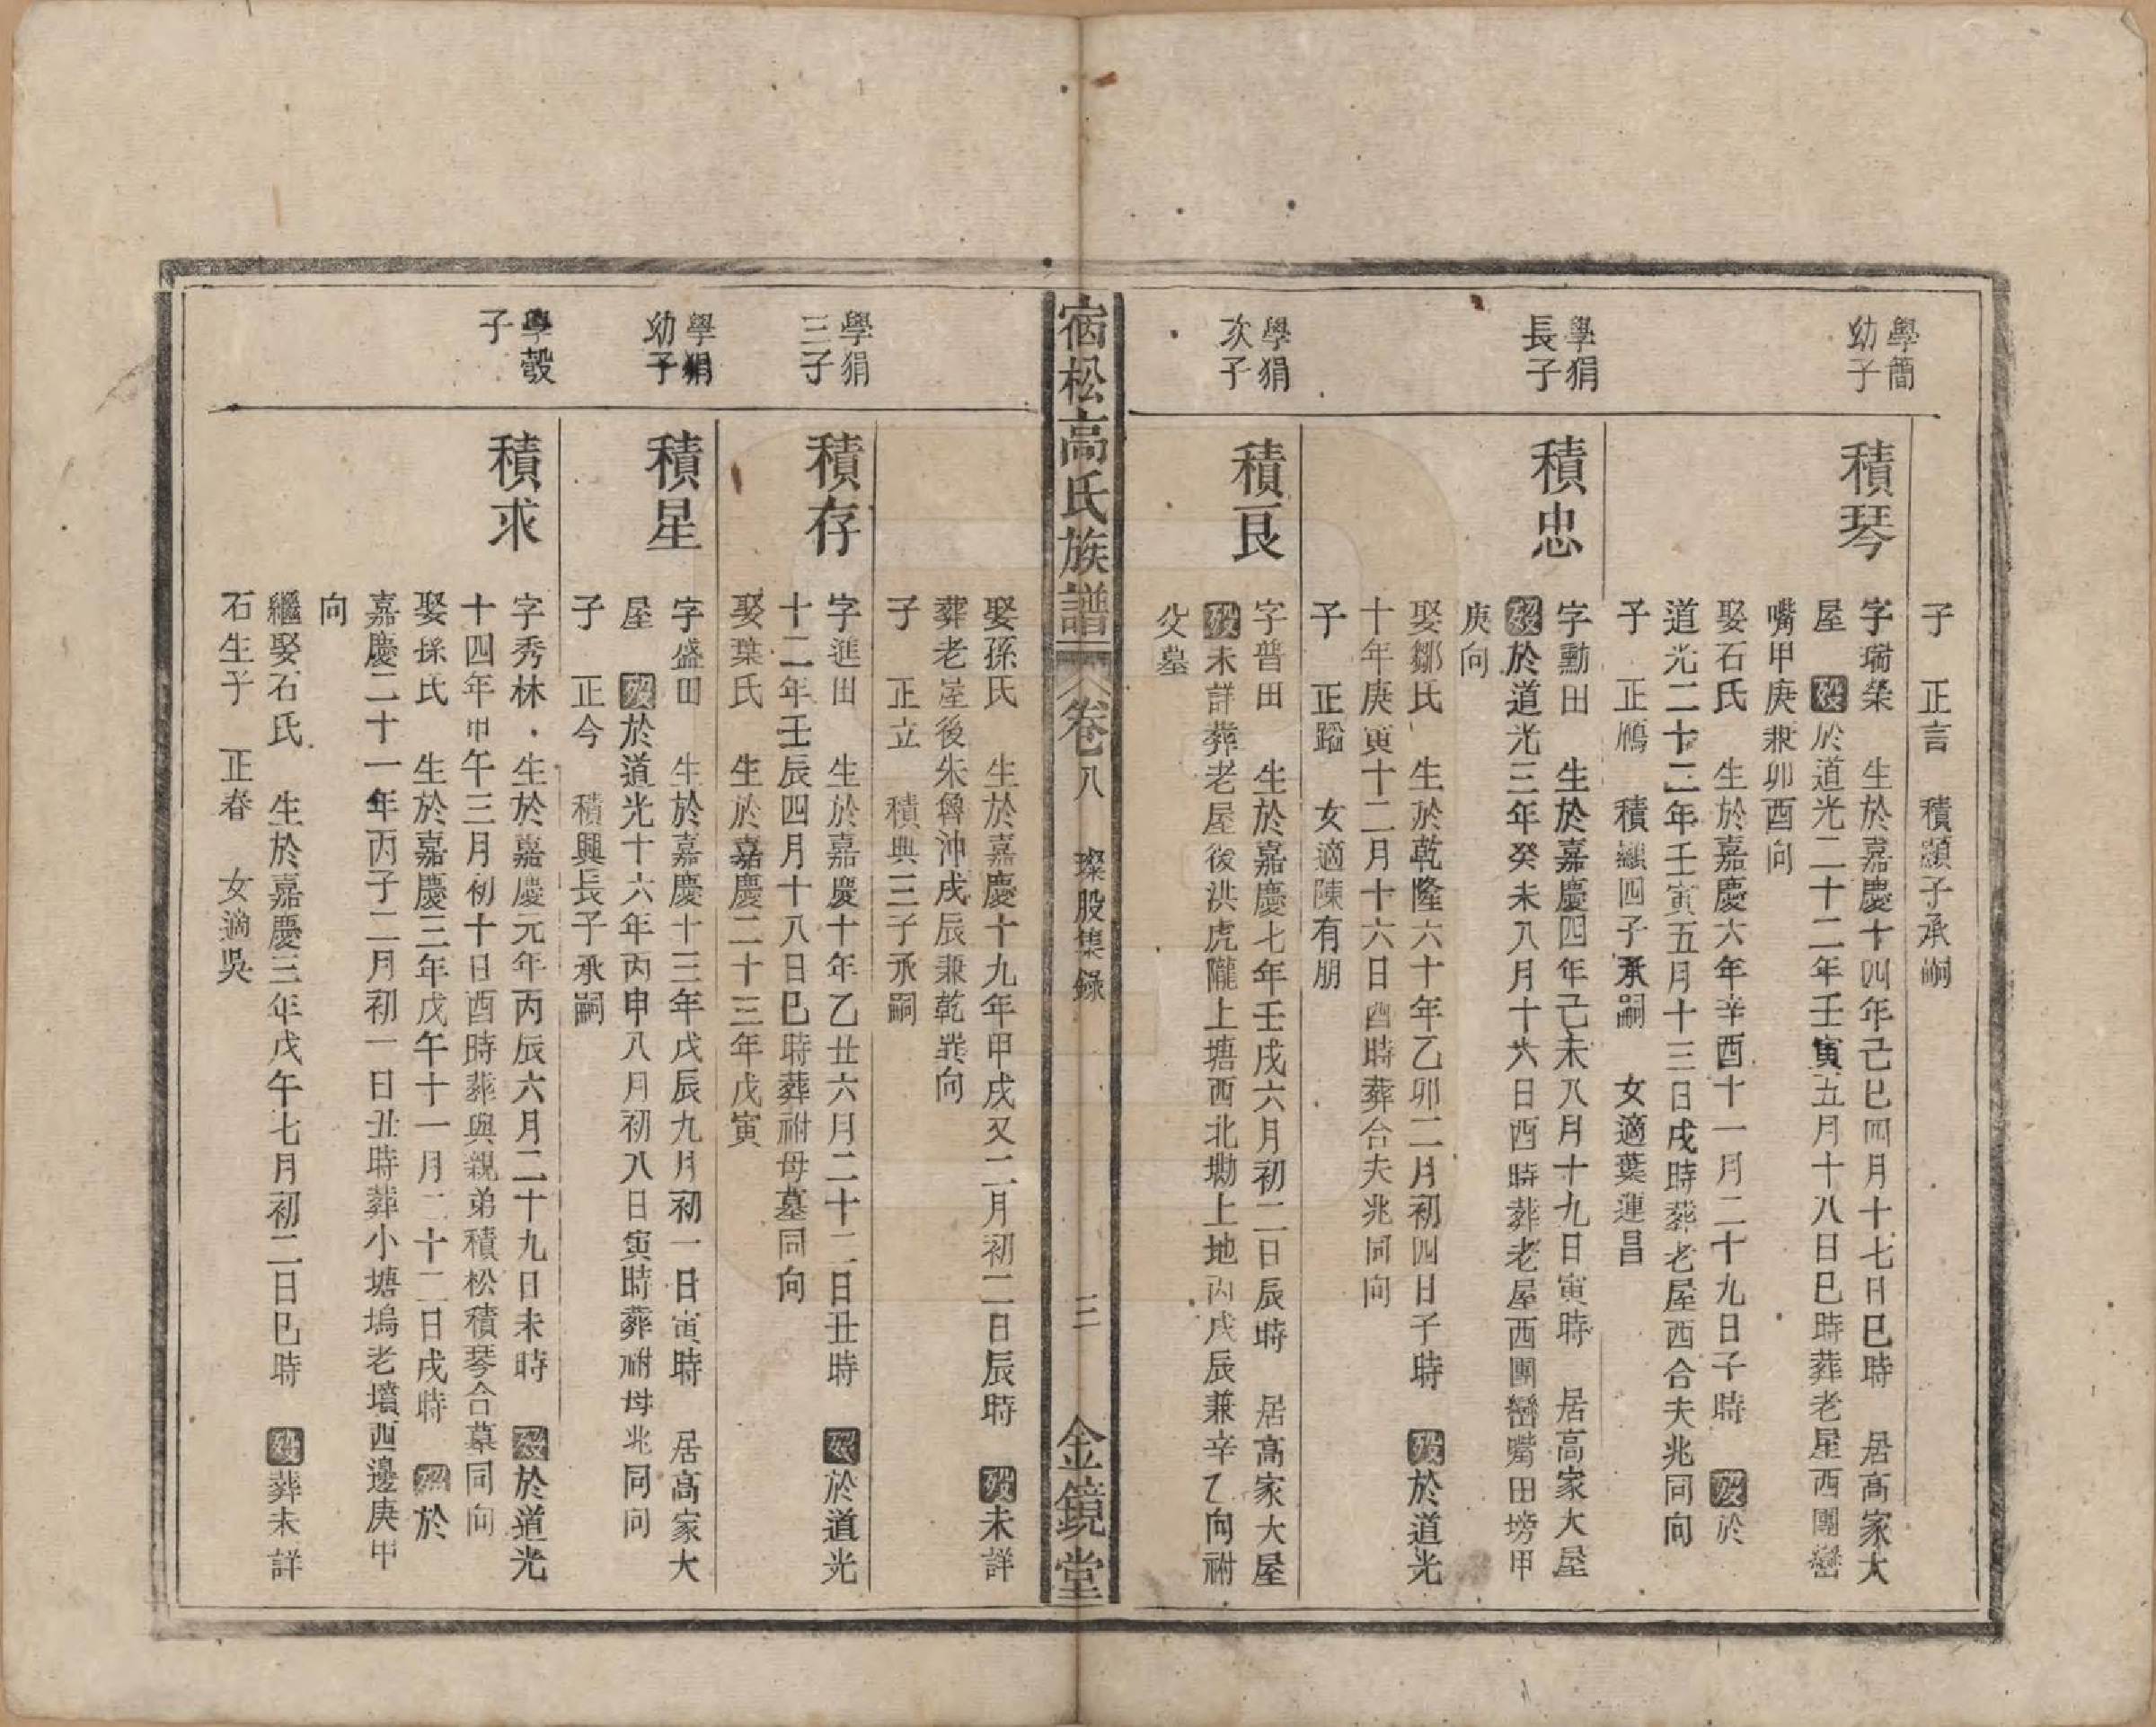 子　正言　積顥子承嗣
學簡
幼子
積琴
字瑞榮　生於嘉慶十四年己巳四月十七日巳時　居高家大
屋　殁於道光二十二年壬寅五月十八日巳時葬老屋西團巒
嘴甲庚兼卯酉向
娶石氏　生於嘉慶六年辛酉十一月二十九日子時　殁於
道光二十二年壬寅五月十三日戌時葬老屋西合夫兆同向
子　正鴈　積顯四子承嗣　女適葉運昌
學狷
長子
積忠
字勳田　生於嘉慶四年己未八月十九日寅時　居高家大屋
殁於道光三年癸未八月十六日酉時葬老屋西團巒嘴田塝甲
庚向
娶鄒氏　生於乾隆六十年乙卯二月初四日子時　殁於道光
十年庚寅十二月十六日酉時葬合夫兆同向
子　正蹈　女適陳有朋
學狷
次子
積艮
字普田　生於嘉慶七年壬戌六月初二日辰時　居高家大屋
殁未詳葬老屋後洪虎隴上塘西北塝上地丙戌辰兼辛乙向祔
父墓
宿松高氏族譜　卷八　璨股集錄　三　金鏡堂
娶孫氏　生於嘉慶十九年甲戌又二月初二日辰時　殁未詳
葬老屋後朱魯沖戌辰兼乾巽向
子　正立　積興三子承嗣
學狷
三子
積存
字進田　生於嘉慶十年乙丑六月二十二日丑時　殁於道光
十二年壬辰四月十八日巳時葬祔母墓同向
娶葉氏　生於嘉慶二十三年戊寅
學狷
幼子
積星
字盛田　生於嘉慶十三年戊辰九月初一日寅時　居高家大
屋　殁於道光十六年丙申八月初八日寅時葬祔母兆同向
子　正今　積興長子承嗣
學彀
子
積求
字秀林　生於嘉慶元年丙辰六月二十九日未時　殁於道光
十四年甲午三月初十日酉時葬與親弟積松積琴合墓同向
娶孫氏　生於嘉慶三年戊午十一月二十二日戌時　殁於
嘉慶二十一年丙子二月初一日丑時葬小塘塢老墳西邊庚甲
向
繼娶石氏　生於嘉慶三年戊午七月初二日巳時　殁葬未詳
石生子　正春　女適吳